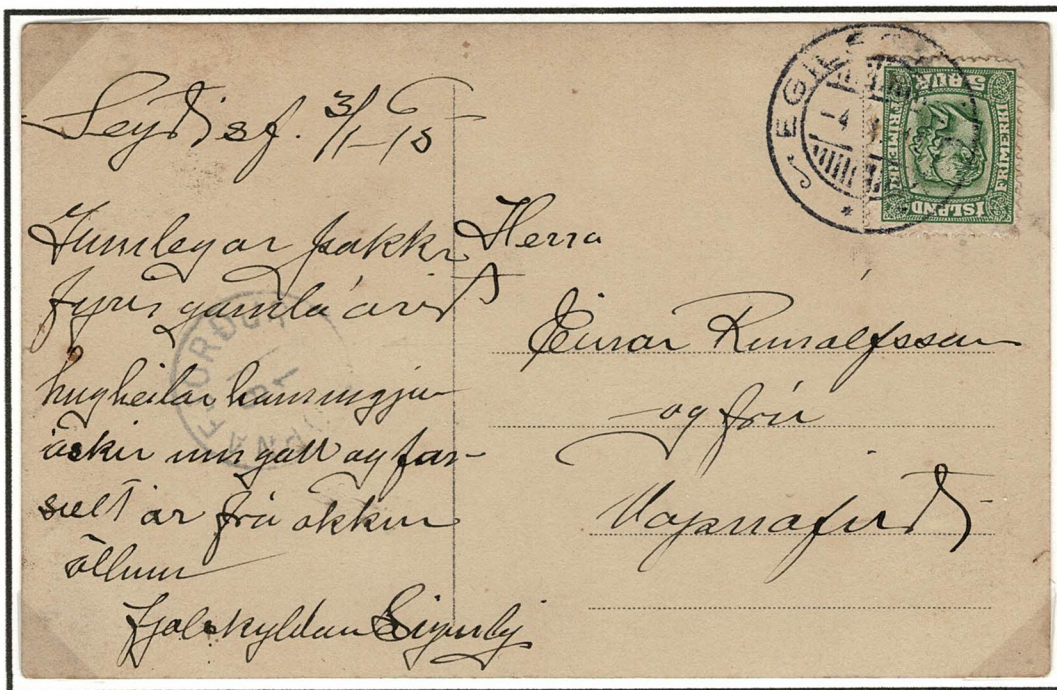 Seyðisf. 3/1-15
Innilegar þakkir
fyrir gamla árið
hugheilar hamingju
óskir um gott og far-
sælt ár frá okkur
öllum
fjölskyldan
Herra
Einar Runólfsson
og frú
Vopnafirði
EGILS
-4
5 AUR
FRIMERKI
FRIMERKI
ISLAND